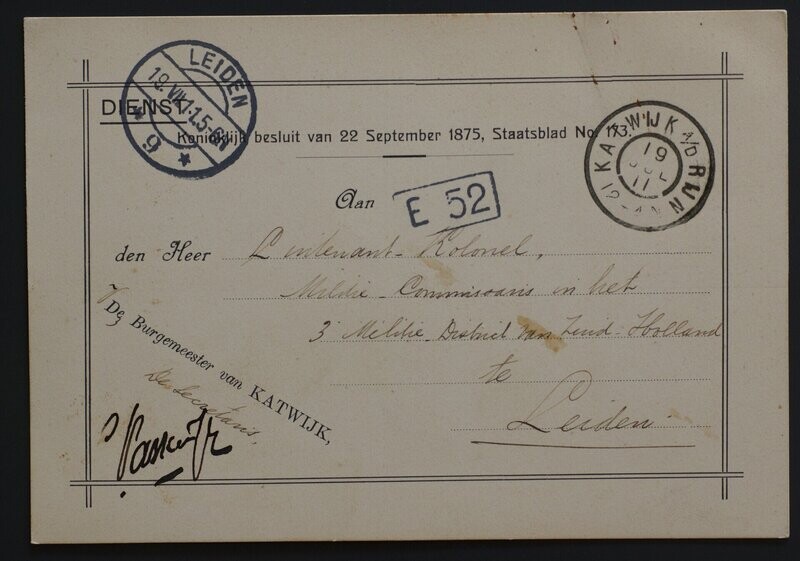 LEIDEN
19. VII. 11. 5-6N
* 9 *
DIENST
Koninklijk besluit van 22 September 1875, Staatsblad No. 173.
KATWIJK A/D RIJN
19
JUL
11
Aan
E 52
den Heer Luitenant-Kolonel,
Militie-Commissaris in het
3e Militie-District van Zuid-Holland
te
Leiden
De Burgemeester van KATWIJK,
De Secretaris,